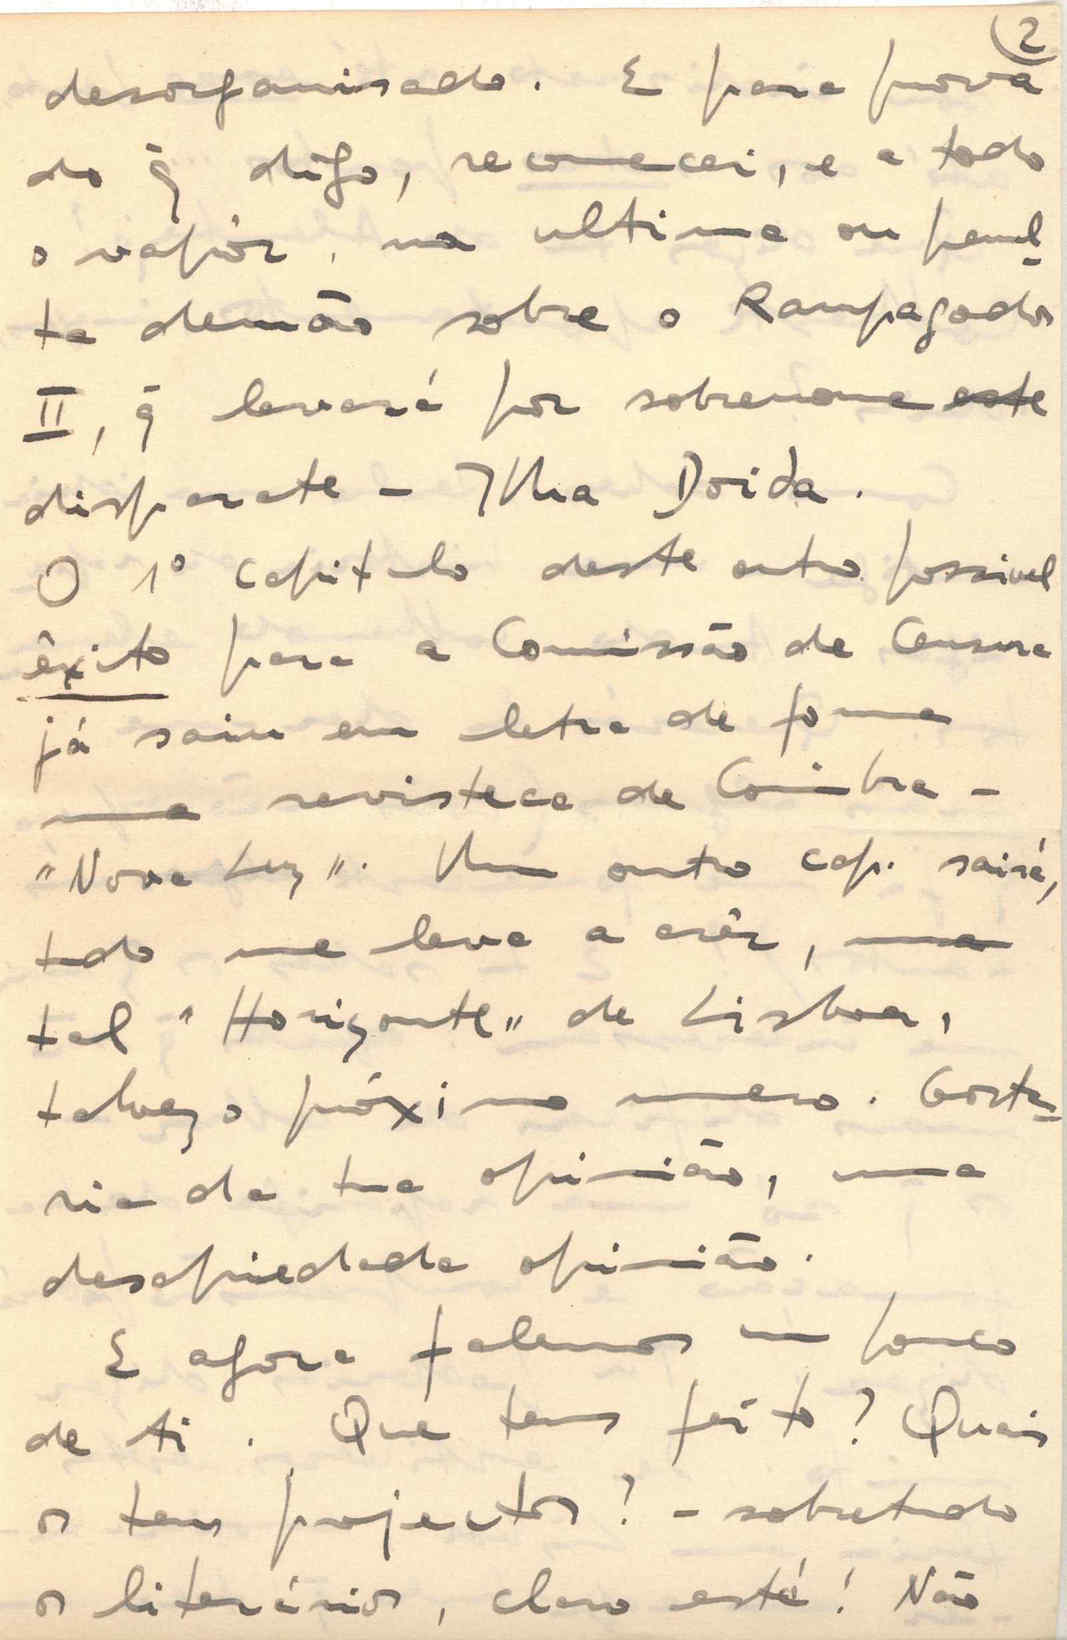 2
desorganisado. E para prova
do q̃ digo, recomecei, e a todo
o vapôr, na ultima ou penul-
ta demão sobre o Rampagodos
II, q̃ levará por sobrenome este
disparate – Ilha Doida.
O 1º capitulo deste outro possivel
êxito para a Comissão de Censura
já saiu em letra de forma
na revisteca de Coimbra –
"Nova Luz". Um outro cap. sairá,
tudo me leva a crêr, na
tal "Horizonte" de Lisboa,
talvez o próximo numero. Gosta-
ria da tua opinião, uma
desapiedada opinião.
E agora falemos um pouco
de ti. Que tens feito? Quais
os teus projectos? – sobretudo
os literários, claro está! Não